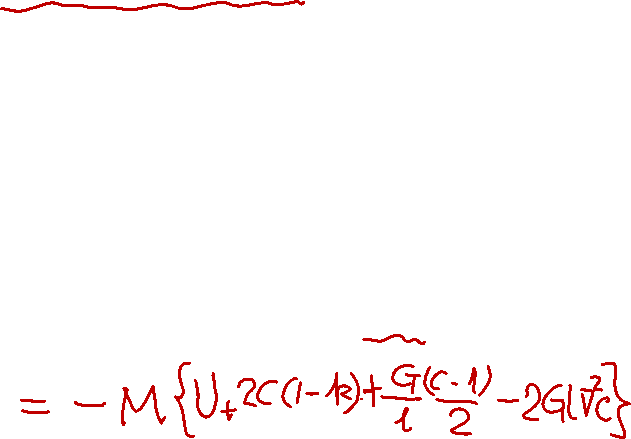 = - M { U + 2C (1 - k) + G/1 (c - 1)/2 - 2G(√²c }